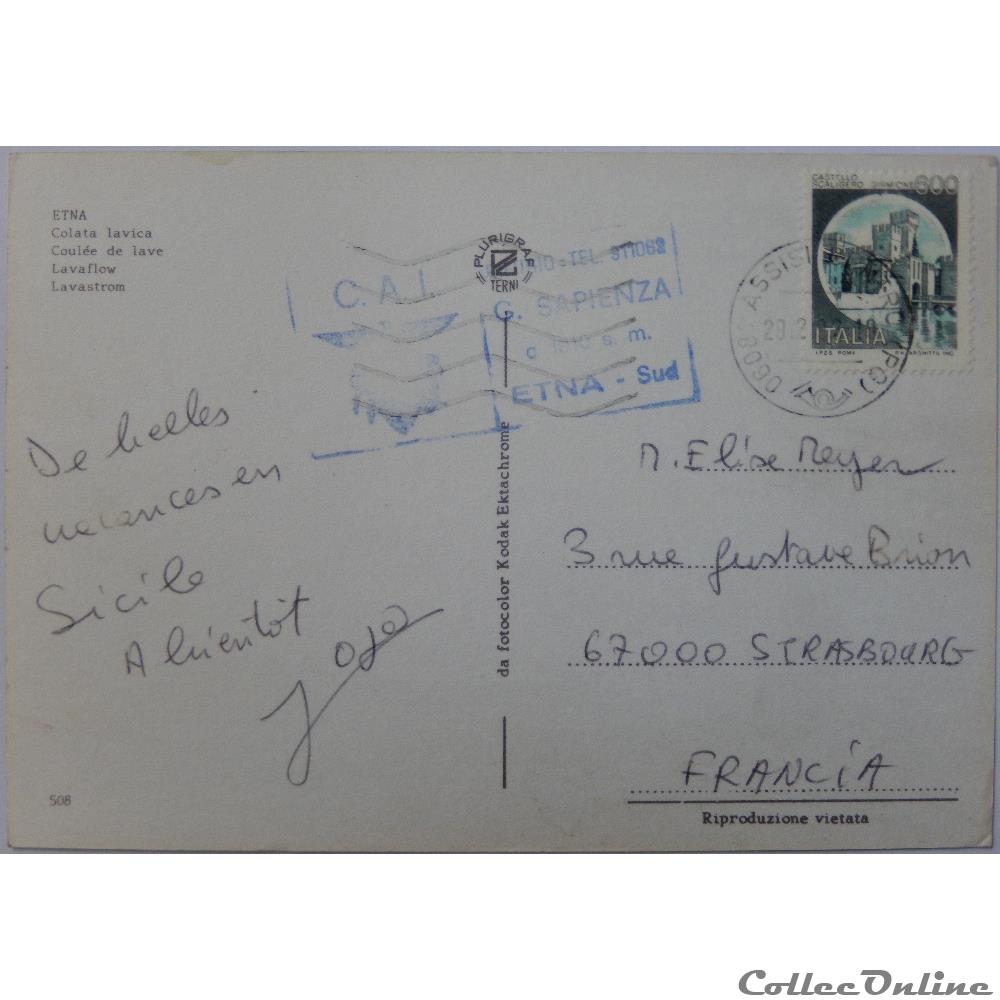 ETNA
Colata lavica
Coulée de lave
Lavaflow
Lavastrom
PLURIGRAF
TERNI
C.A.I.
TEL. 911062
G. SAPIENZA
s. m.
ETNA - Sud
CASTELLO
SCALIGERO SIRMIONE 600
ITALIA
I.P.Z.S. ROMA
ASSISI
(PG)
De belles
vacances en
Sicile
A bientôt
M. Elise Meyer
3 rue Gustave Brion
67000 STRASBOURG
FRANCIA
da fotocolor Kodak Ektachrome
508
Riproduzione vietata
CollecOnline